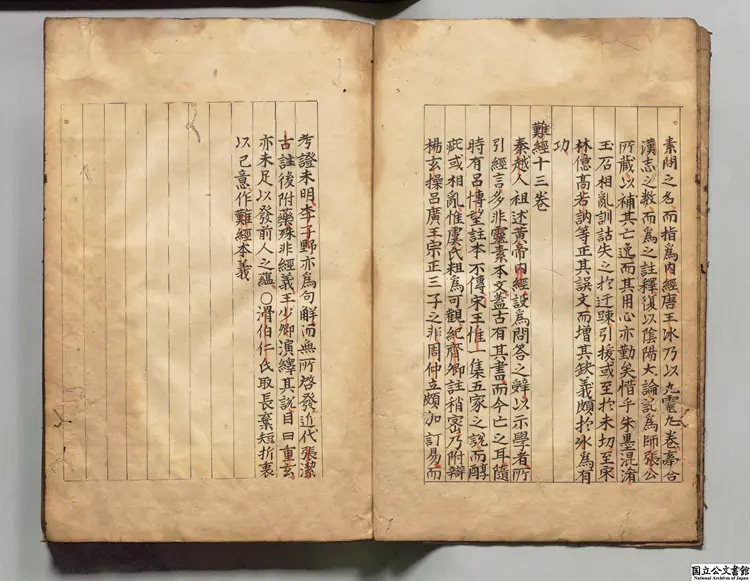 素問之名而指為內經唐王氷乃以九靈九卷牽合
漢志之數而為之註釋復以陰陽大論託為師張公
所藏以補其亡逸而其用心亦勤矣惜乎朱墨混淆
玉石相亂訓詁失之於迂踈引援或至於未切至宋
林億高若訥等正其誤文而增其缺義頗於氷為有
功
難經十三卷
秦越人祖述黃帝內經設為問答之辭以示學者所
引經言多非靈素本文蓋古有其書而今亡之耳隨
時有呂博望註本不傳宋王惟一集五家之說而醇
疵或相亂惟虞氏粗為可觀紀齊卿註稍密乃附辯
楊玄操呂廣王宗正三子之非周仲立頗加訂易而
考證未明李子野亦為句解而無所啓發近代張潔
古註後附藥殊非經義王少卿演繹其說目曰重玄
亦未足以發前人之蘊〇滑伯仁氏取長棄短折衷
以己意作難經本義
国立公文書館
National Archives of Japan